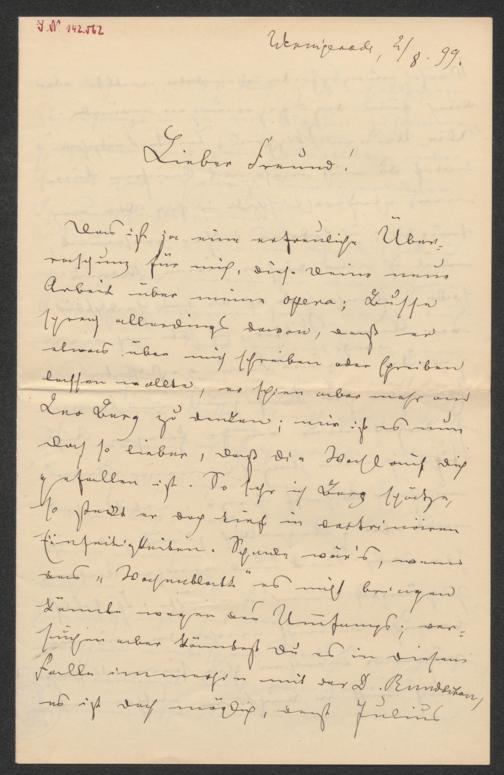 J. N 142.562
Wernigerode, 2/8. 99.
Lieber Freund!
Das ist ja eine erfreuliche Über-
raschung für mich, diese Deine neue
Arbeit über meine opera; Busse
sprach allerdings davon, daß er
etwas über mich schreiben oder schreiben
lassen wollte, er schien aber mehr an
Leo Berg zu denken; mir ist es nun
doch so lieber, daß die Wahl auf Dich
gefallen ist. So sehr ich Berg schätze,
so steckt er doch tief in doktrinären
Einseitigkeiten. Schade wär's, wenn
das „Wochenblatt“ es nicht bringen
könnte wegen des Umfangs; ver-
suchen aber könntest Du es in diesem
Falle immerhin mit der D. Rundschau,
es ist doch möglich, daß Julius